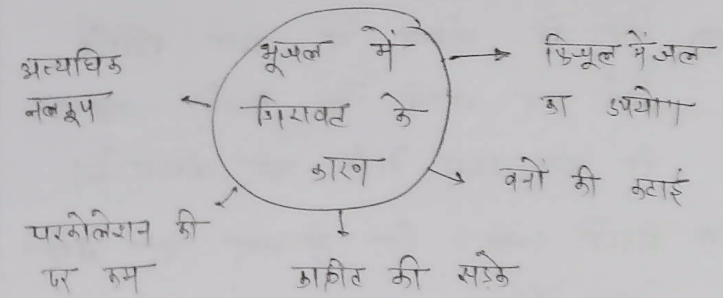 भूजल में
गिरावट के
कारण
अत्यधिक
नलकूप
फिजूल में जल
का उपयोग
वनों की कटाई
परकोलेशन की
दर कम
कांक्रीट की सड़के